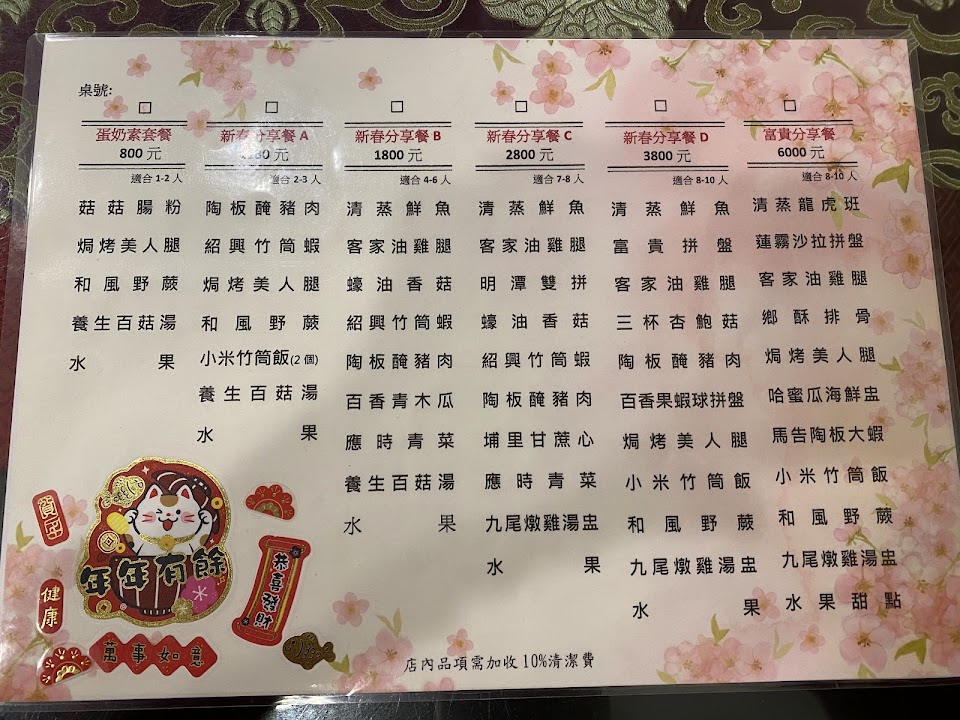 桌號:
□
蛋奶素套餐
800 元
適合 1-2 人
菇菇腸粉
焗烤美人腿
和風野蕨
養生百菇湯
水果
□
新春分享餐 A
元
適合 2-3 人
陶板醃豬肉
紹興竹筒蝦
焗烤美人腿
和風野蕨
小米竹筒飯(2 個)
養生百菇湯
水果
□
新春分享餐 B
1800 元
適合 4-6 人
清蒸鮮魚
客家油雞腿
蠔油香菇
紹興竹筒蝦
陶板醃豬肉
百香青木瓜
應時青菜
養生百菇湯
水果
□
新春分享餐 C
2800 元
適合 7-8 人
清蒸鮮魚
客家油雞腿
明潭雙拼
蠔油香菇
紹興竹筒蝦
陶板醃豬肉
埔里甘蔗心
應時青菜
九尾燉雞湯盅
水果
□
新春分享餐 D
3800 元
適合 8-10 人
清蒸鮮魚
富貴拼盤
客家油雞腿
三杯杏鮑菇
陶板醃豬肉
百香果蝦球拼盤
焗烤美人腿
小米竹筒飯
和風野蕨
九尾燉雞湯盅
水果
□
富貴分享餐
6000 元
適合 8-10 人
清蒸龍虎班
蓮霧沙拉拼盤
客家油雞腿
鄉酥排骨
焗烤美人腿
哈蜜瓜海鮮盅
馬告陶板大蝦
小米竹筒飯
和風野蕨
九尾燉雞湯盅
水果甜點
賀年
年年有餘
健康
萬事如意
恭喜發財
店內品項需加收 10%清潔費